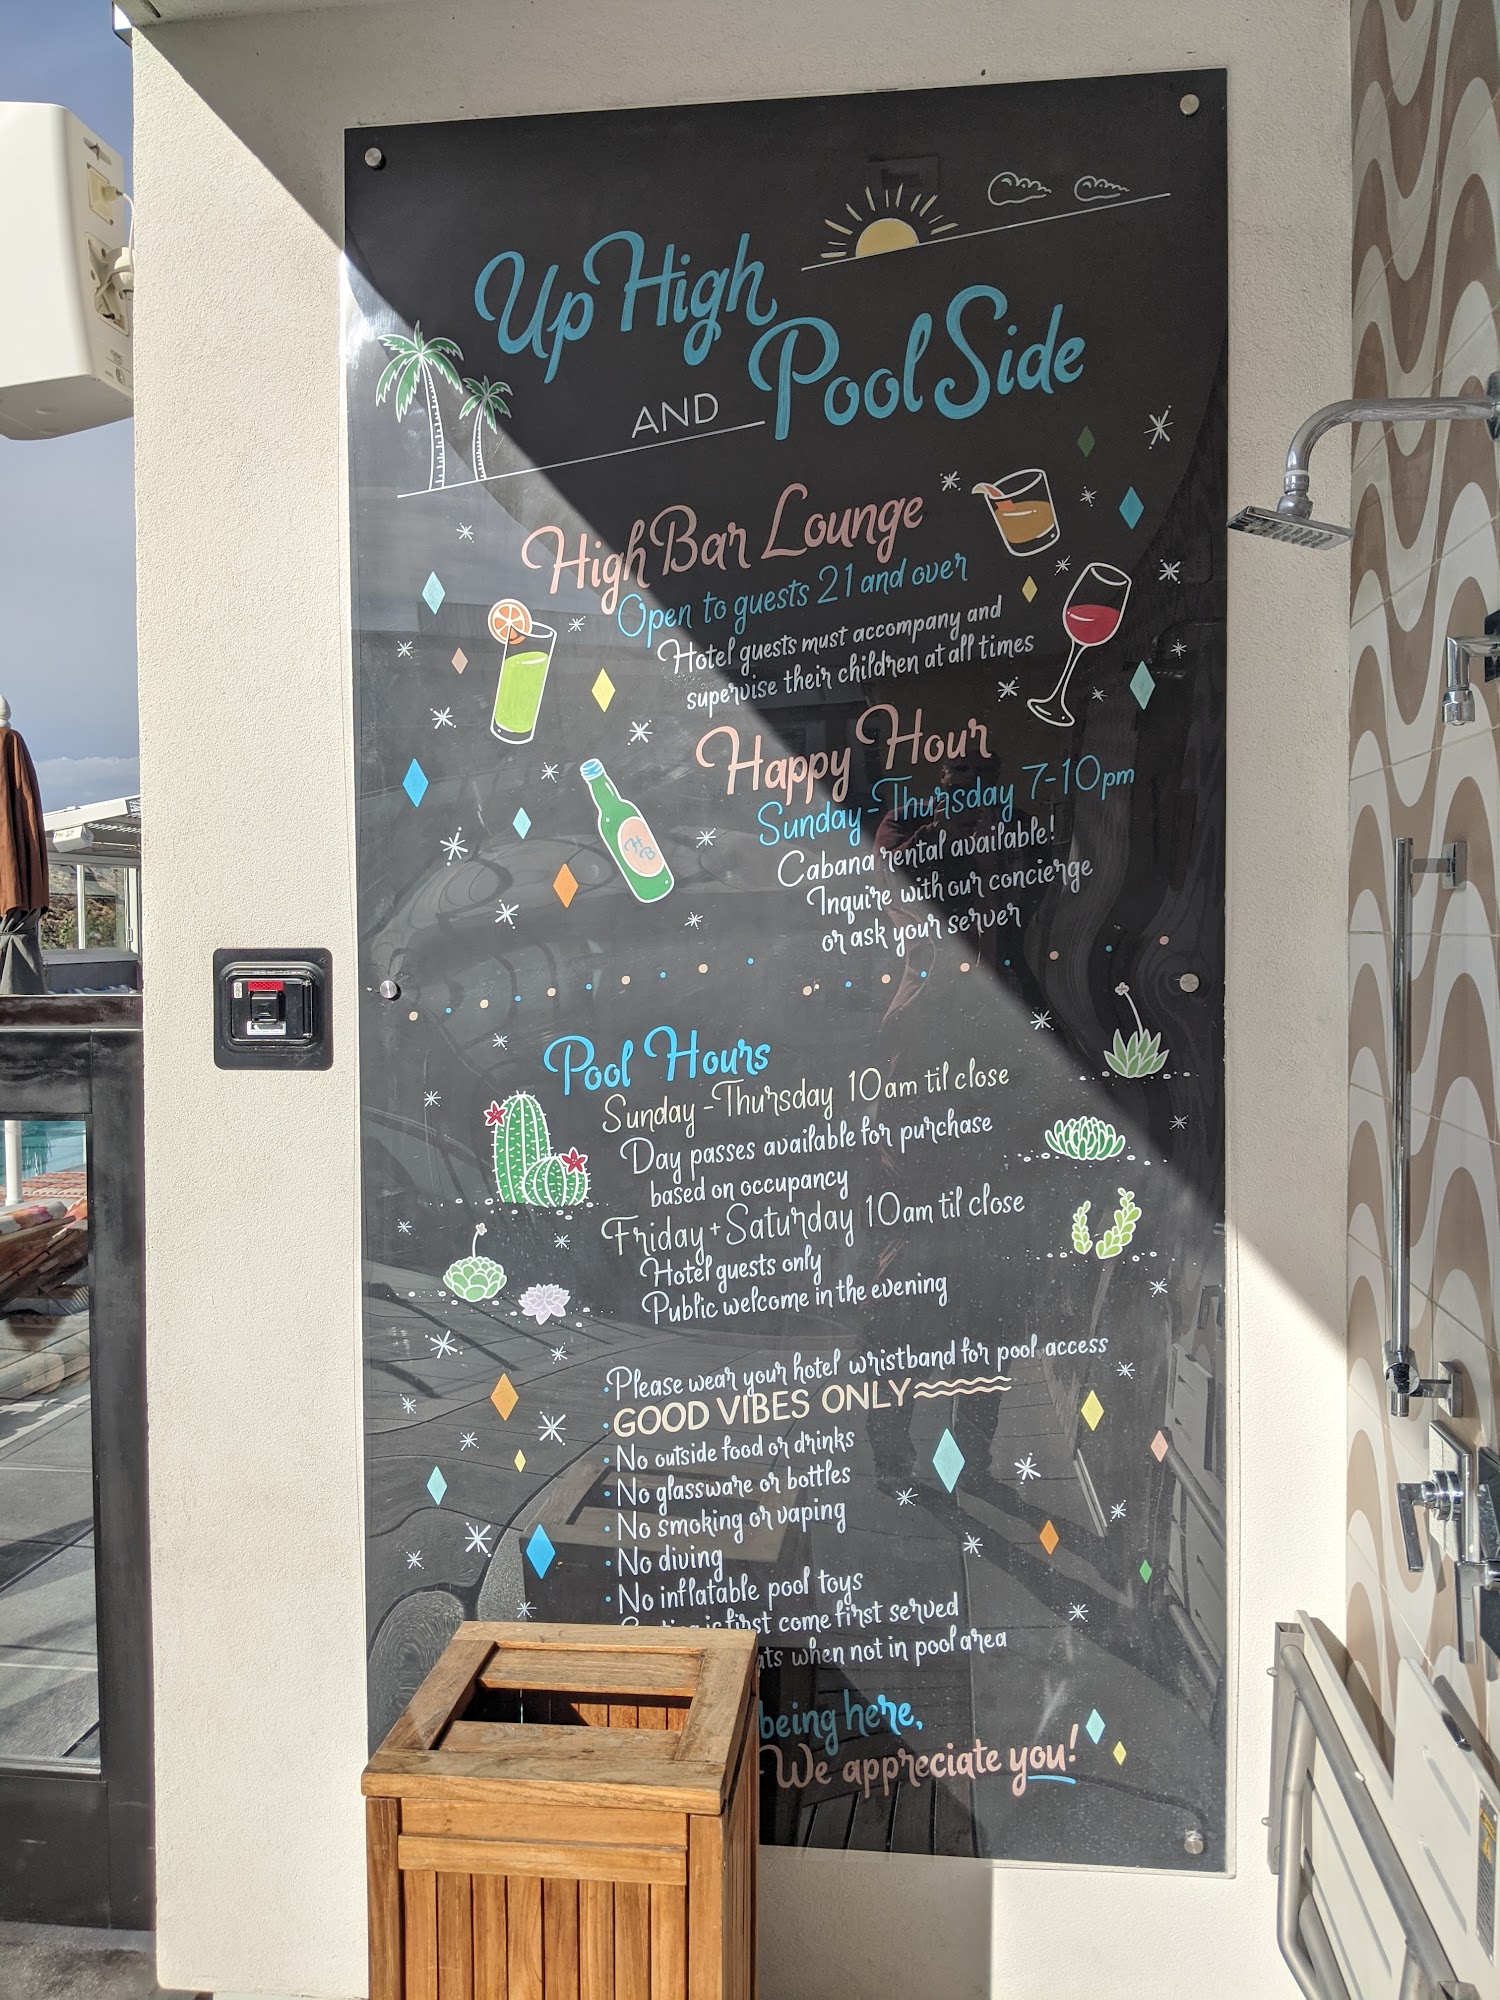 Up High
AND Pool Side
High Bar Lounge
Open to guests 21 and over
Hotel guests must accompany and
supervise their children at all times
Happy Hour
Sunday-Thursday 7-10pm
Cabana rental available!
Inquire with our concierge
or ask your server
HB
Pool Hours
Sunday-Thursday 10am til close
Day passes available for purchase
based on occupancy
Friday + Saturday 10am til close
Hotel guests only
Public welcome in the evening
·Please wear your hotel wristband for pool access
·GOOD VIBES ONLY
·No outside food or drinks
·No glassware or bottles
·No smoking or vaping
·No diving
·No inflatable pool toys
is first come first served
when not in pool area
being here,
We appreciate you!